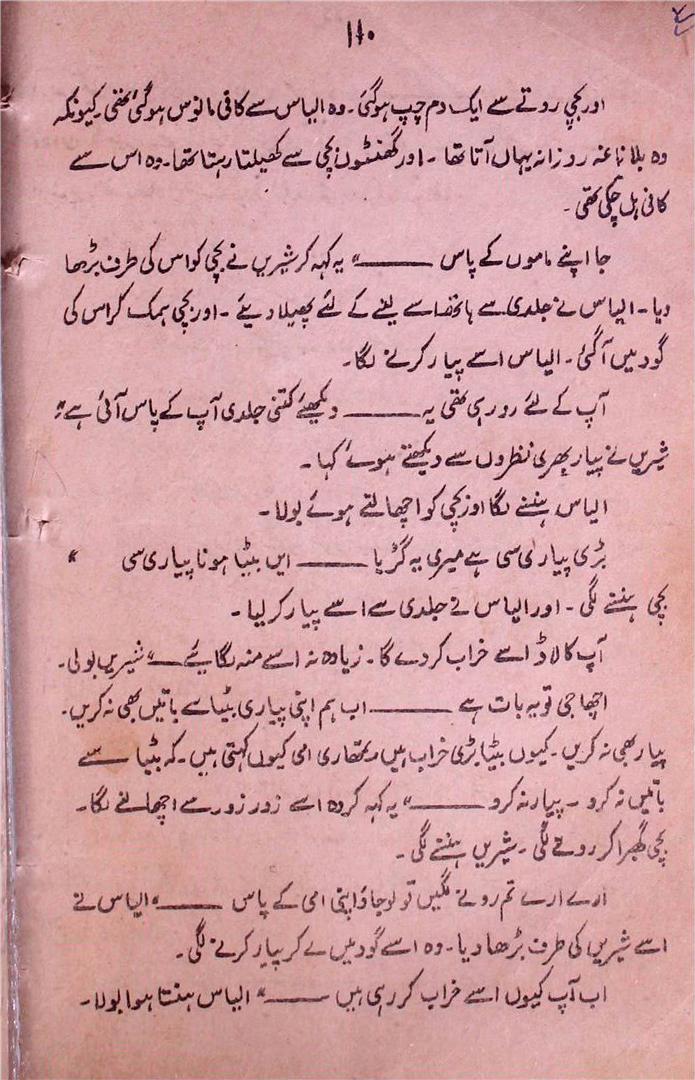 ۱۱۰
اور بچی روتے سے ایک دم چپ ہوگئی۔ وہ الیاس سے کافی مانوس ہوگئی تھی۔ کیونکہ
وہ بلا ناغہ روزانہ یہاں آتا تھا ۔ اور گھنٹوں بچی سے کھیلتا رہتا تھا۔ وہ اس سے
کافی ہل چکی تھی ۔
جا اپنے ماموں کے پاس ــــــــ“ یہ کہہ کر شیریں نے بچی کو اس کی طرف بڑھا
دیا۔ الیاس نے جلدی سے ہاتھ اسے لینے کے لئے پھیلا دیئے ۔ اور بچی ہمک کر اس کی
گود میں آگئی۔ الیاس اسے پیار کرنے لگا۔
آپ کے لئے رو رہی تھی یہ ــــــــ دیکھئے کتنی جلدی آپ کے پاس آئی ہے“
شیریں نے پیار بھری نظروں سے دیکھتے ہوئے کہا ۔
الیاس ہنسنے لگا اور بچی کو اچھالتے ہوئے بولا۔
بڑی پیاری سی ہے میری یہ گڑیا ــــــــ ایں بٹیا ہونا پیاری سی “
بچی ہنسنے لگی ۔ اور الیاس نے جلدی سے اسے پیار کر لیا ۔
آپ کا لاڈ اسے خراب کر دے گا۔ زیادہ نہ اسے منہ لگایئے ــــ“ شیریں بولی۔
اچھا جی تو یہ بات ہے ــــــــ اب ہم اپنی پیاری بٹیا سے باتیں بھی نہ کریں۔
پیار بھی نہ کریں۔ کیوں بٹیا بڑی خراب ہیں تمھاری امی کیوں کہتی ہیں۔ کہ بٹیا سے
باتیں نہ کرو ۔ پیار نہ کرو ــــــــ“ یہ کہہ کر وہ اسے زور زور سے اچھالنے لگا۔
بچی گھبرا کر رونے لگی ۔ شیریں ہنسنے لگی ۔
ارے ارے تم رونے لگیں تو لو جاؤ اپنی امی کے پاس ــــــــ“ الیاس نے
اسے شیریں کی طرف بڑھا دیا۔ وہ اسے گود میں لے کر پیار کرنے لگی۔
اب آپ کیوں اسے خراب کر رہی ہیں ــــــــ“ الیاس ہنستا ہوا بولا۔